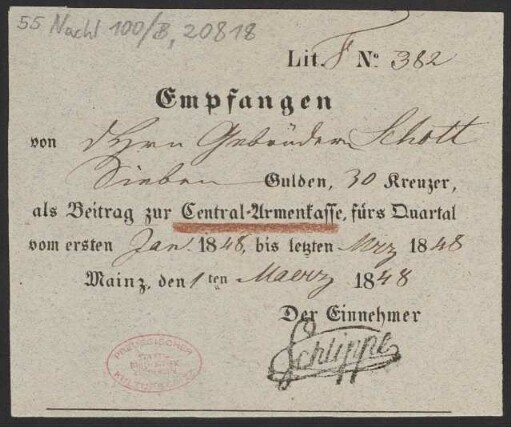 55 Nachl 100/B, 20818
Lit. F No. 382
Empfangen
von dHrrn Gebrüdern Schott
Sieben Gulden, 30 Kreuzer,
als Beitrag zur Central-Armenkasse, fürs Quartal
vom ersten Jan. 1848, bis letzten Mrz 1848
Mainz, den 1ten Maerz 1848
Der Einnehmer
Schlippe
PREUSSISCHER
KULTURBESITZ